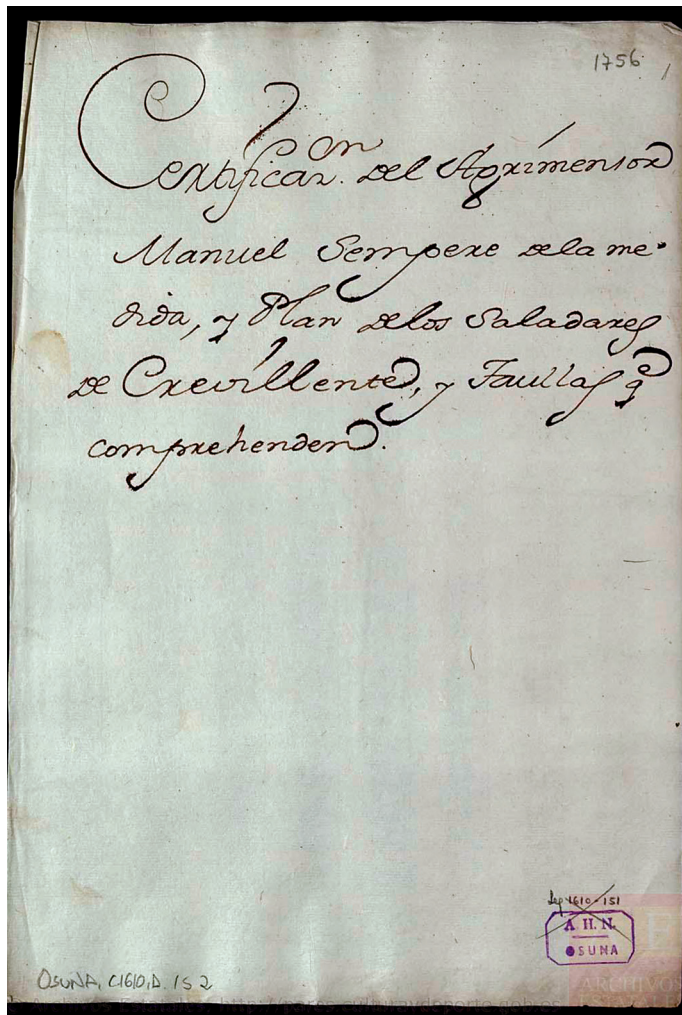 1756
Certificaz.on del Agrimensor
Manuel Sempere de la me-
dida, y Plan de los Saladares
de Crevillente, y Faullas q.e
comprehenden.
Leg 1610-151
A. H. N.
OSUNA
OSUNA, C.1610, D. 152
ARCHIVOS
ESTATALES